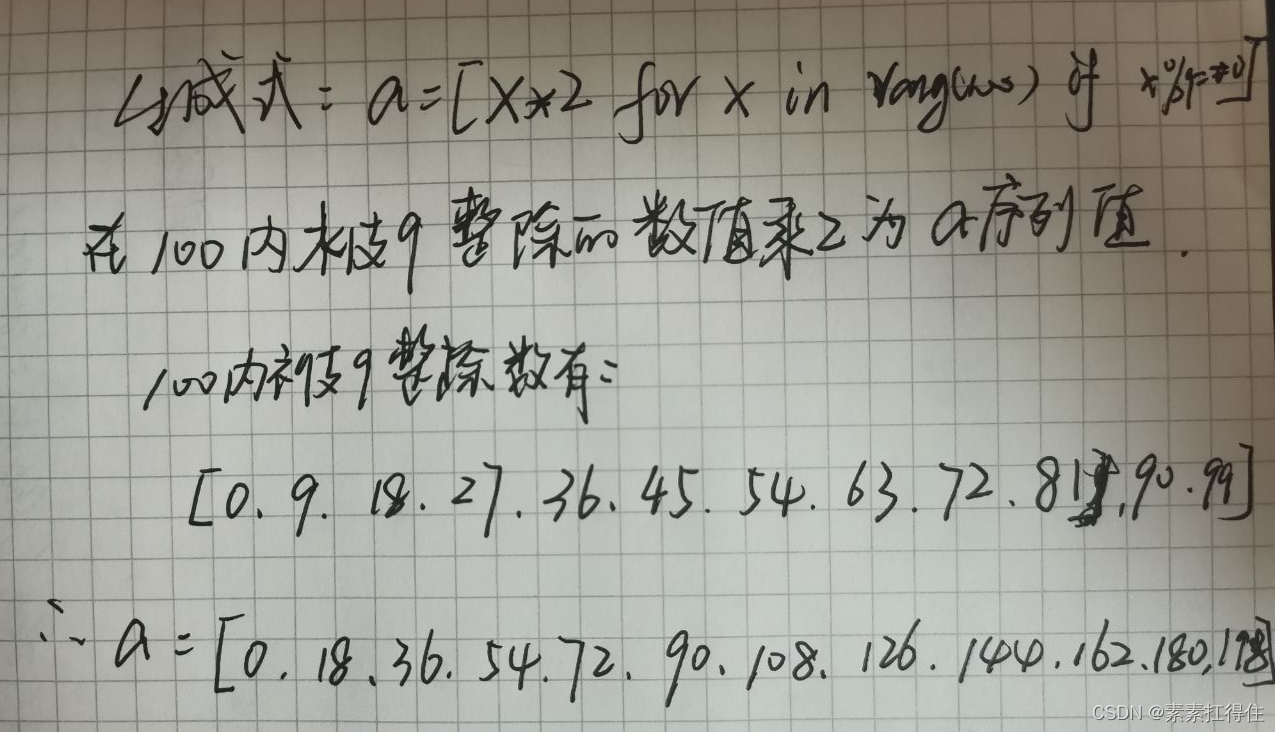 生成式: a=[x*2 for x in rang(100) if x%9==0]
在100内求被9整除的数值乘2为a序列值.
100内被9整除数有:
[0. 9. 18. 27. 36. 45. 54. 63. 72. 81, 90. 99]
∴ a=[0. 18. 36. 54. 72. 90. 108. 126. 144. 162. 180, 198]
CSDN @素素扛得住